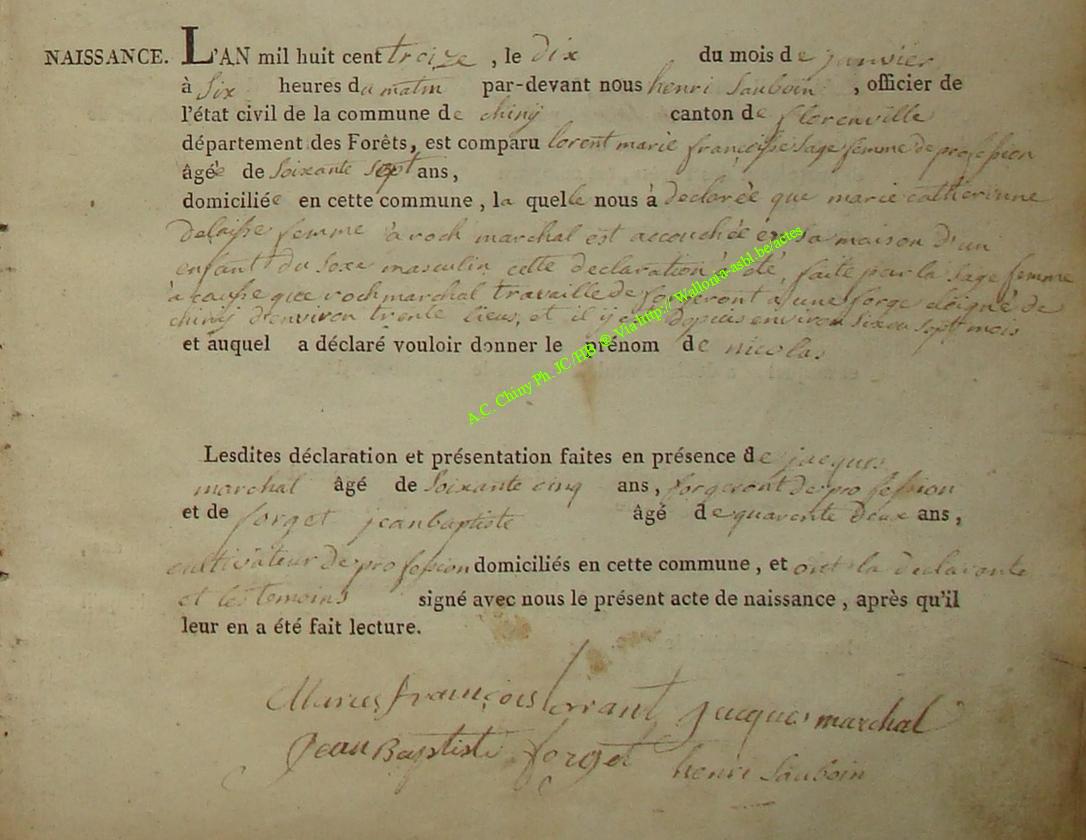 NAISSANCE. L'AN mil huit cent treize, le dix du mois de janvier
à Six heures du matin par-devant nous henri Sauboin, officier de
l'état civil de la commune de chiny canton de florenville
département des Forêts, est comparu lorent marie françoisse Sage femme de profession
âgée de Soixante Sept ans,
domiciliée en cette commune, la quelle nous à declarée que marie catherinne
delaisse femme à roch marchal est accouchée en Sa maison d'un
enfant du Sexe masculin cette declaration à été faite par la Sage femme
à causse que roch marchal travaille de forgeront à une forge éloigné de
chiny d'environ trente lieus, et il y est depuis environ Six ou Sept mois
et auquel a déclaré vouloir donner le prénom de nicolas
Lesdites déclaration et présentation faites en présence de jacques
marchal âgé de Soixante cinq ans, forgeront de profession
et de forget jean baptiste âgé de quarente deux ans,
cultivateur de profession domiciliés en cette commune, et ont la declarante
et les temoins signé avec nous le présent acte de naissance, après qu'il
leur en a été fait lecture.
Marie françois lorrant jacques marchal
Jean Baptiste forget henri Sauboin
A.C. Chiny Ph. JC/HB @ Via http://Wallonia-asbl.be/actes